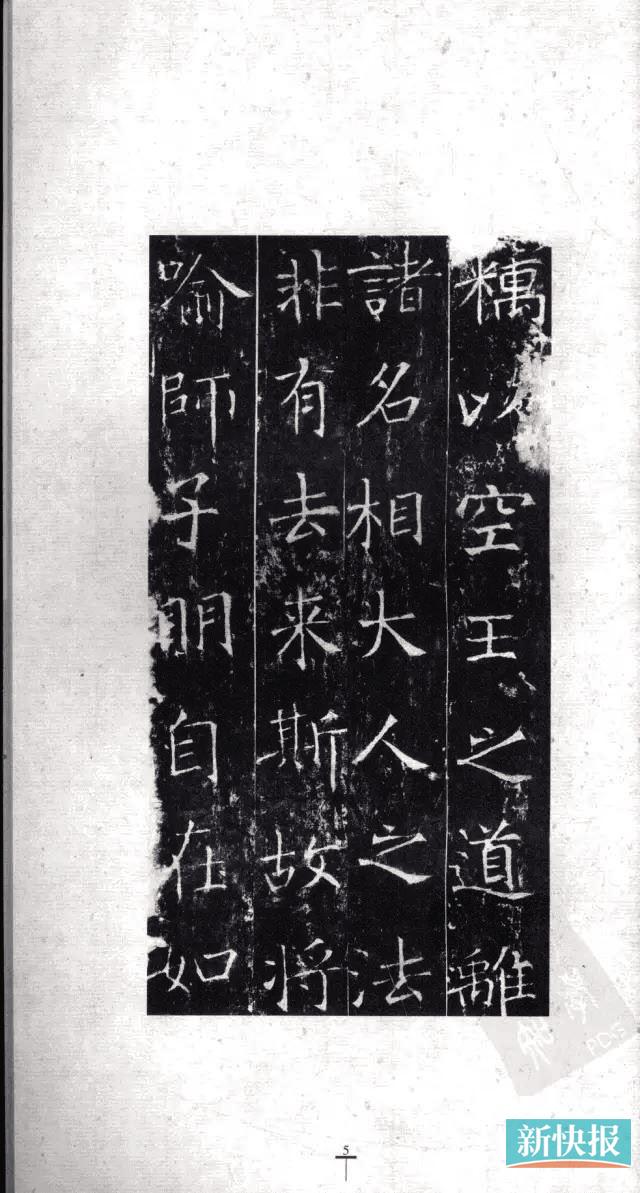 以空王之道離
諸名相大人之法
非有去来斯故将
喻師子明自在如
5
新快报